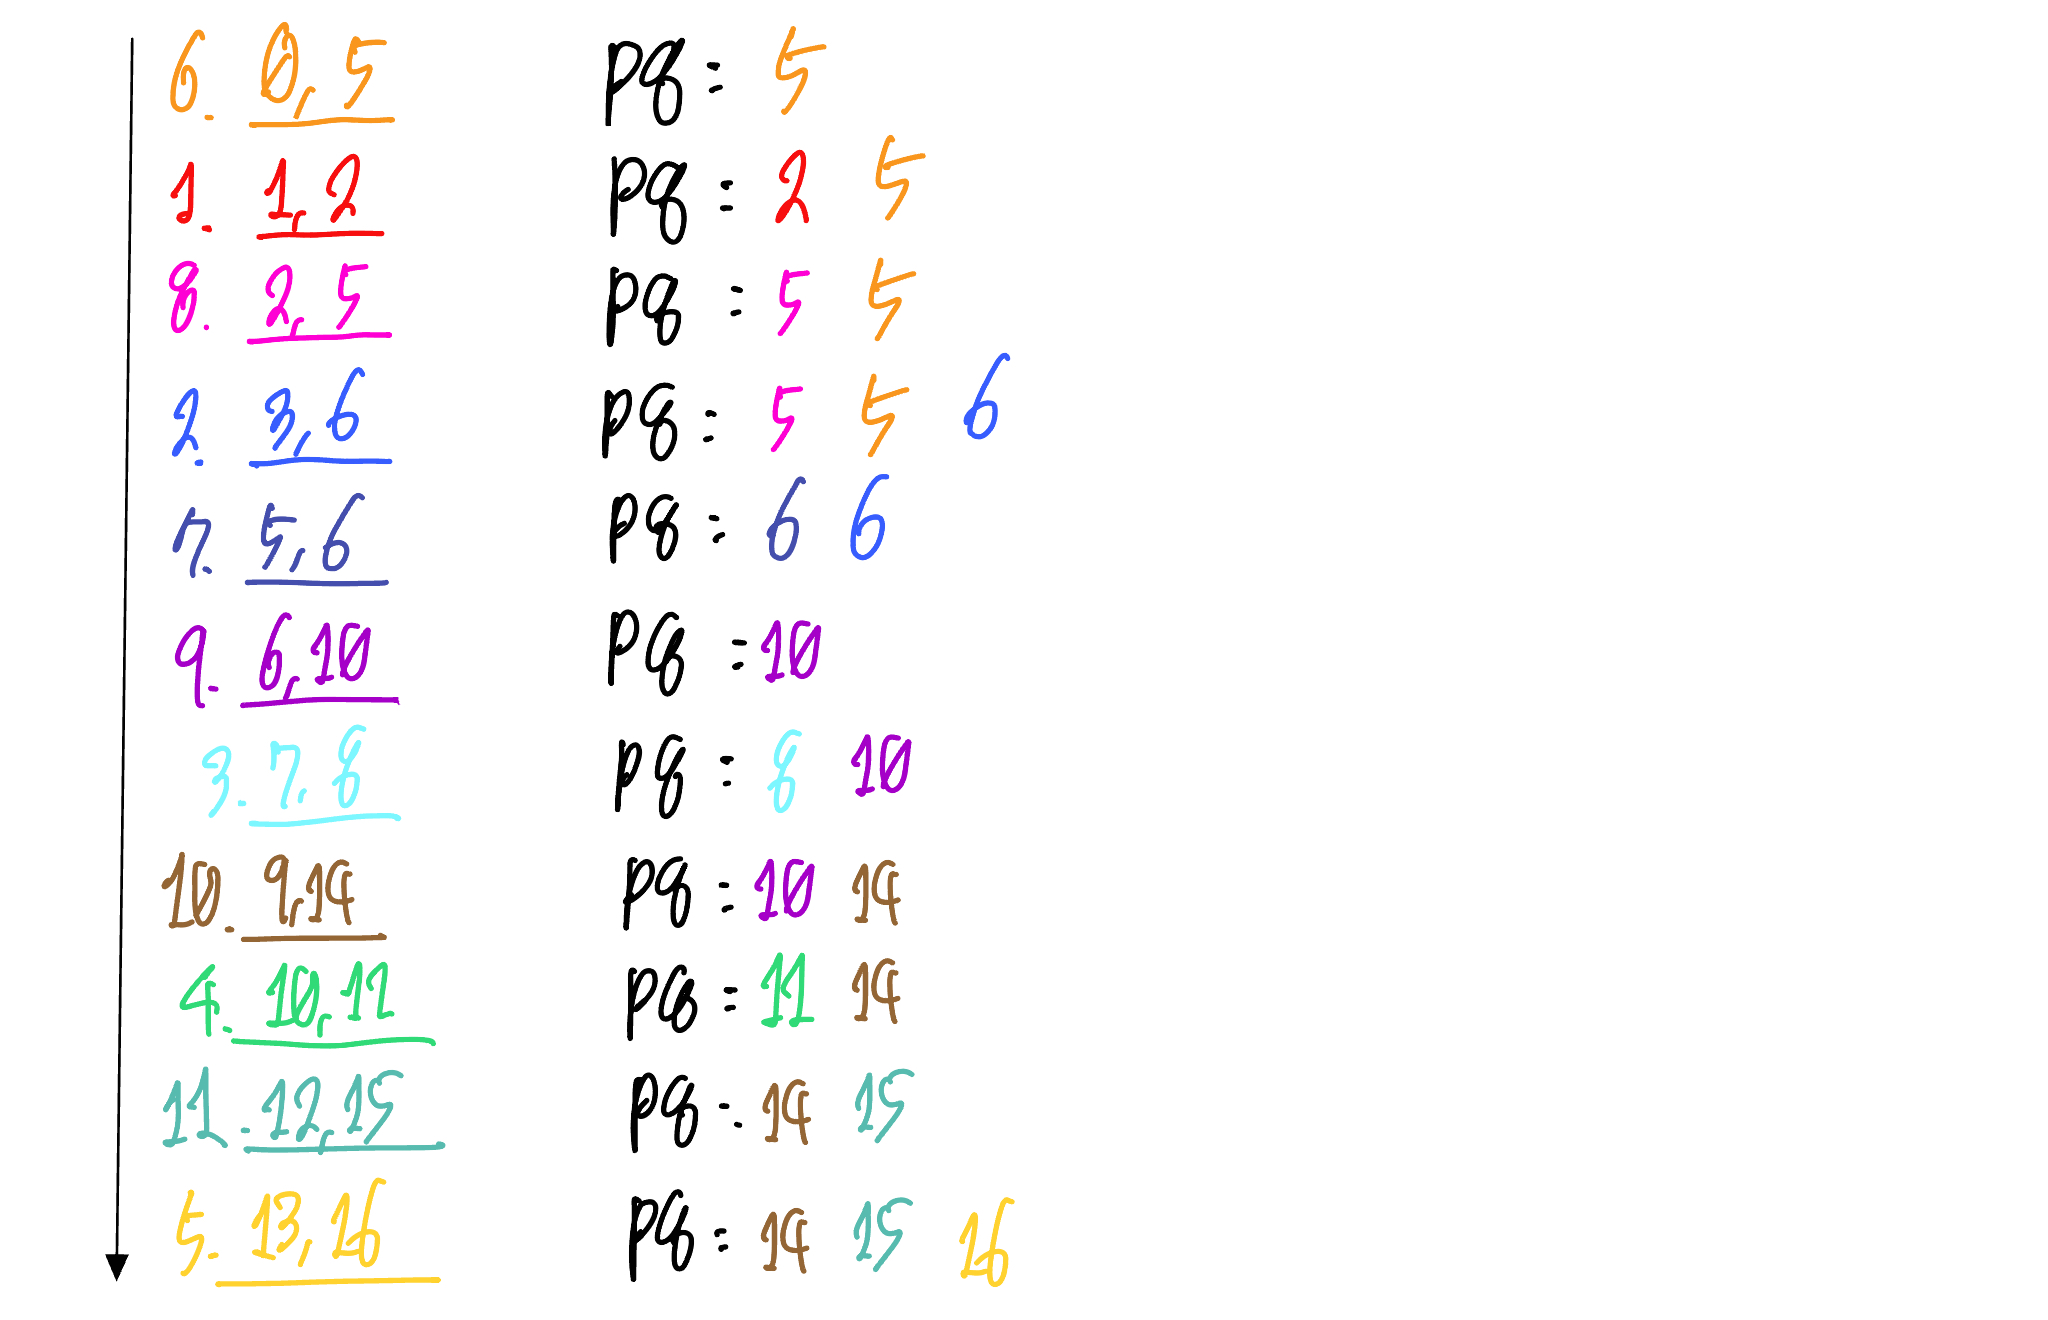 6. 0, 5 pq = 5
1. 1, 2 pq = 2 5
8. 2, 5 pq = 5 5
2. 3, 6 pq = 5 5 6
7. 5, 6 pq = 6 6
9. 6, 10 pq = 10
3. 7, 8 pq = 8 10
10. 9, 14 pq = 10 14
4. 10, 11 pq = 11 14
11. 12, 15 pq = 14 15
5. 13, 16 pq = 14 15 16